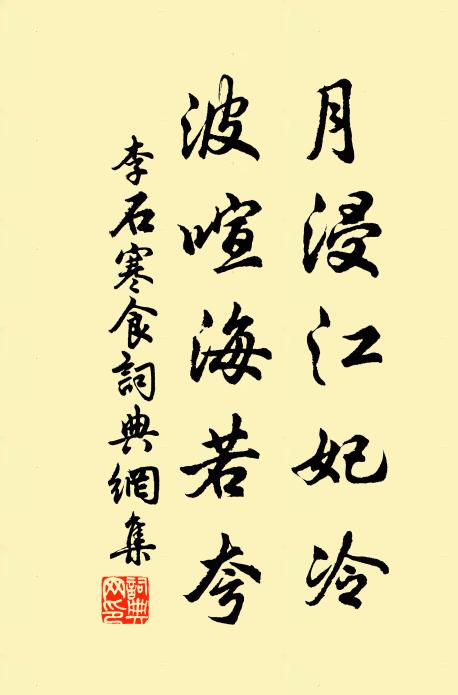 月浸江妃冷
波喧海若夸
李石寒食詞典網集
詞典网印